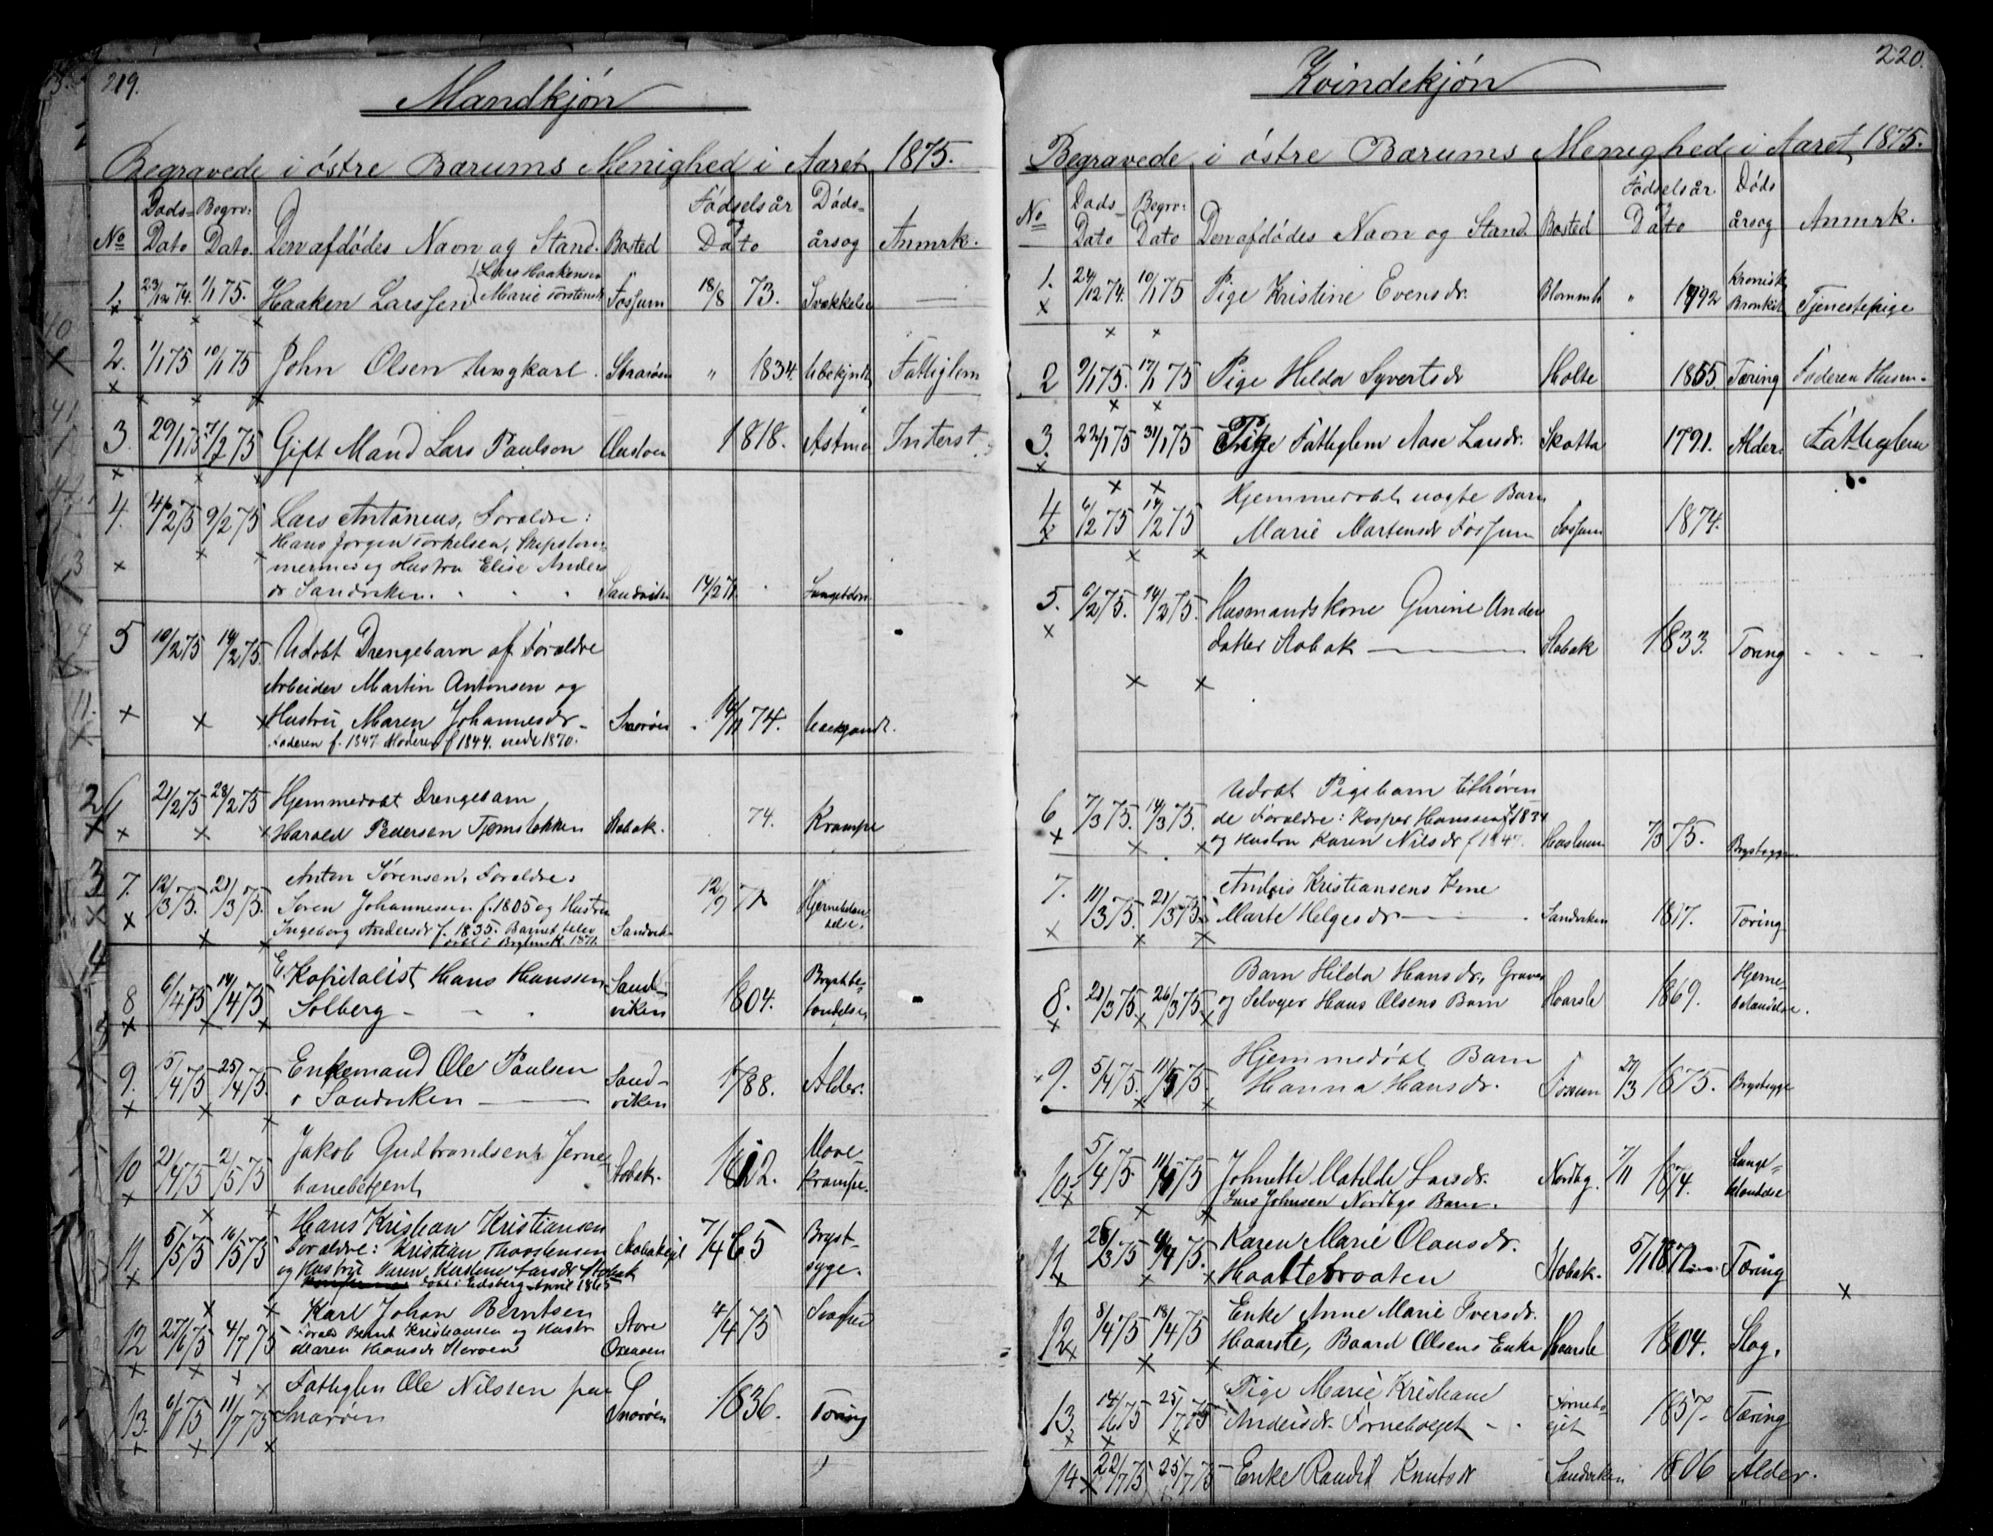 219.
Mandkjön
Begravede i östre Bærums Menighed i Aaret 1875.
No Döds-Dato Begrv: Dato Den afdödes Navn og Stand. Bosted Födselsår og Dato Döds-årsog Anmrk.
1. 23/12 74. 1/1 75. Haaken Larssen { Lars Haakensen Marie Torstensdr Fossum 18/8 73. Svækkelse —
2. 1/1 75 10/1 75 John Olsen Ungkarl. Snarøen " 1834. Ubekjendt Fattiglem
3. 29/1 75 7/2 75 Gift Mand Lars Paulson 1818. Astma Inderst.
4. 4/2 75 9/2 75 Lars Antonius, Forældre:
Hans Jørgen Torkelsen, Skipstøm
mermand og Hustru Elise Anders
dr Sandviken. Sandviken 14/2 71
5 10/2 75 14/2 75. Udøbt Drengebarn af Forældre
Arbeider Martin Antonsen og
Hustru Maren Johannesdr. Snarøen 74.
Faderen f. 1847 Moderen f 1844. viede 1870.
6 21/2 75 28/2 75 Hjemmedøbt Drengebarn
Harald Pedersen Stabæk. 74. Krampe
7. 12/3 75. 21/3 75. Anton Sørensen, Forældre:
Søren Johannessen f. 1805 og Hustru
Ingeborg Andersdr f. 1835. Barnet blev Sandvik 12/9 71 Hjernebetændelse.
døbt i 1871.
8 6/4 75 14/4 75 Kapitalist Hans Hanssen
Solberg - - . Sandviken 1804. Brystbetændelse
9. 5/4 75 25/4 75. Enkemand Ole Paulsen
i Sandviken — Sandviken 1788. Alder.
10 21/4 75 2/5 75 Jakob Gudbrandsen Jerne
banebetjent Stabæk. 1812. Mave Krampe.
11. 5/5 75 16/5 75 Hans Kristian Kristiansen
Forældre: Kristian Thorstensen
og Hustru Karen Kirstine Larsdr Stabæk 7/4 65 Bryst-syge.
døbt i Eidsberg April 1865
12 27/6 75 4/7 75 Karl Johan Berntsen
Foræld Bernt Kristiansen og Hustru
Maren Hansdr Store Oxenøen 4/4 75
13. 6/7 75 11/7 75 Fattiglem Ole Nilssen paa
Snarøen Snarøen 1836. Tæring
220.
Kvindekjön
Begravede i östre Bærums Menighed i Aaret 1875.
No Döds-Dato Begrv: Dato Den afdödes Navn og Stand Bosted Födselsår og Dato Döds årsog Anmrk.
1. 24/12 74. 10/1 75 Pige Kristine Evensdr. Blommh " 1792 Kronisk Bronkit Tjenestepige
2 9/1 75. 17/1 75 Pige Hilda Syvertsdr Holte 1855. Tæring Faderen Husm.
3. 22/1 75 31/1 75 Pige Fattiglem Aase Larsdr. Skotta 1791. Alder. Fattiglem
4. 6/2 75 14/2 75 Hjemmedøbt uægte Barn
Marie Martensdr Fossum Fossum 1874.
5. 6/2 75. 14/2 75. Husmandskone Gurine Anders
datter Stabæk — Stabæk 1833. Tæring
6 7/3 75. 14/3 75. Udøbt Pigebarn tilhøren
de Forældre: Kasper Hanssen f. 1834
og Hustru Karen Nilsdr f 1847. Haslum 7/3 75. Brystsyge
7. 11/3 75. 21/3 75. Andreas Kristiansens Kone
Marte Helgesdr — Sandviken 1817. Tæring
8. 21/3 75. 26/3 75 Barn Hilda Hansdr, Graver
og Selveier Hans Olsens Barn Haarsle 1869. Hjernebetændelse.
9. 5/4 75. 11/4 75. Hjemmedøbt Barn
Hanna Hansdr. Fossum 27/3 1875. Brystsyge
10. 5/4 75. 11/4 75 Johnette Matilde Larsdr. Nordbg. 7/11 1874. Lungebetændelse
Lars Johnsen Nordbys Barn.
11. 28/3 75 4/4 75. Karen Marie Olausdr.
Haattebraaten Stabæk. 5/1 1872 Tæring
12. 8/4 75 18/4 75 Enke Anne Marie Iversdr.
Haarsle, Baard Olsens Enke Haarsle 1804. Slag.
13. 14/6 75 25/7 75 Pige Marie Kristiane
Andersdr. Fornebo-ejet 1857 Tæring
14 22/7 75 25/7 75 Enke Randi Knutsdr Sandviken 1806 Alder.